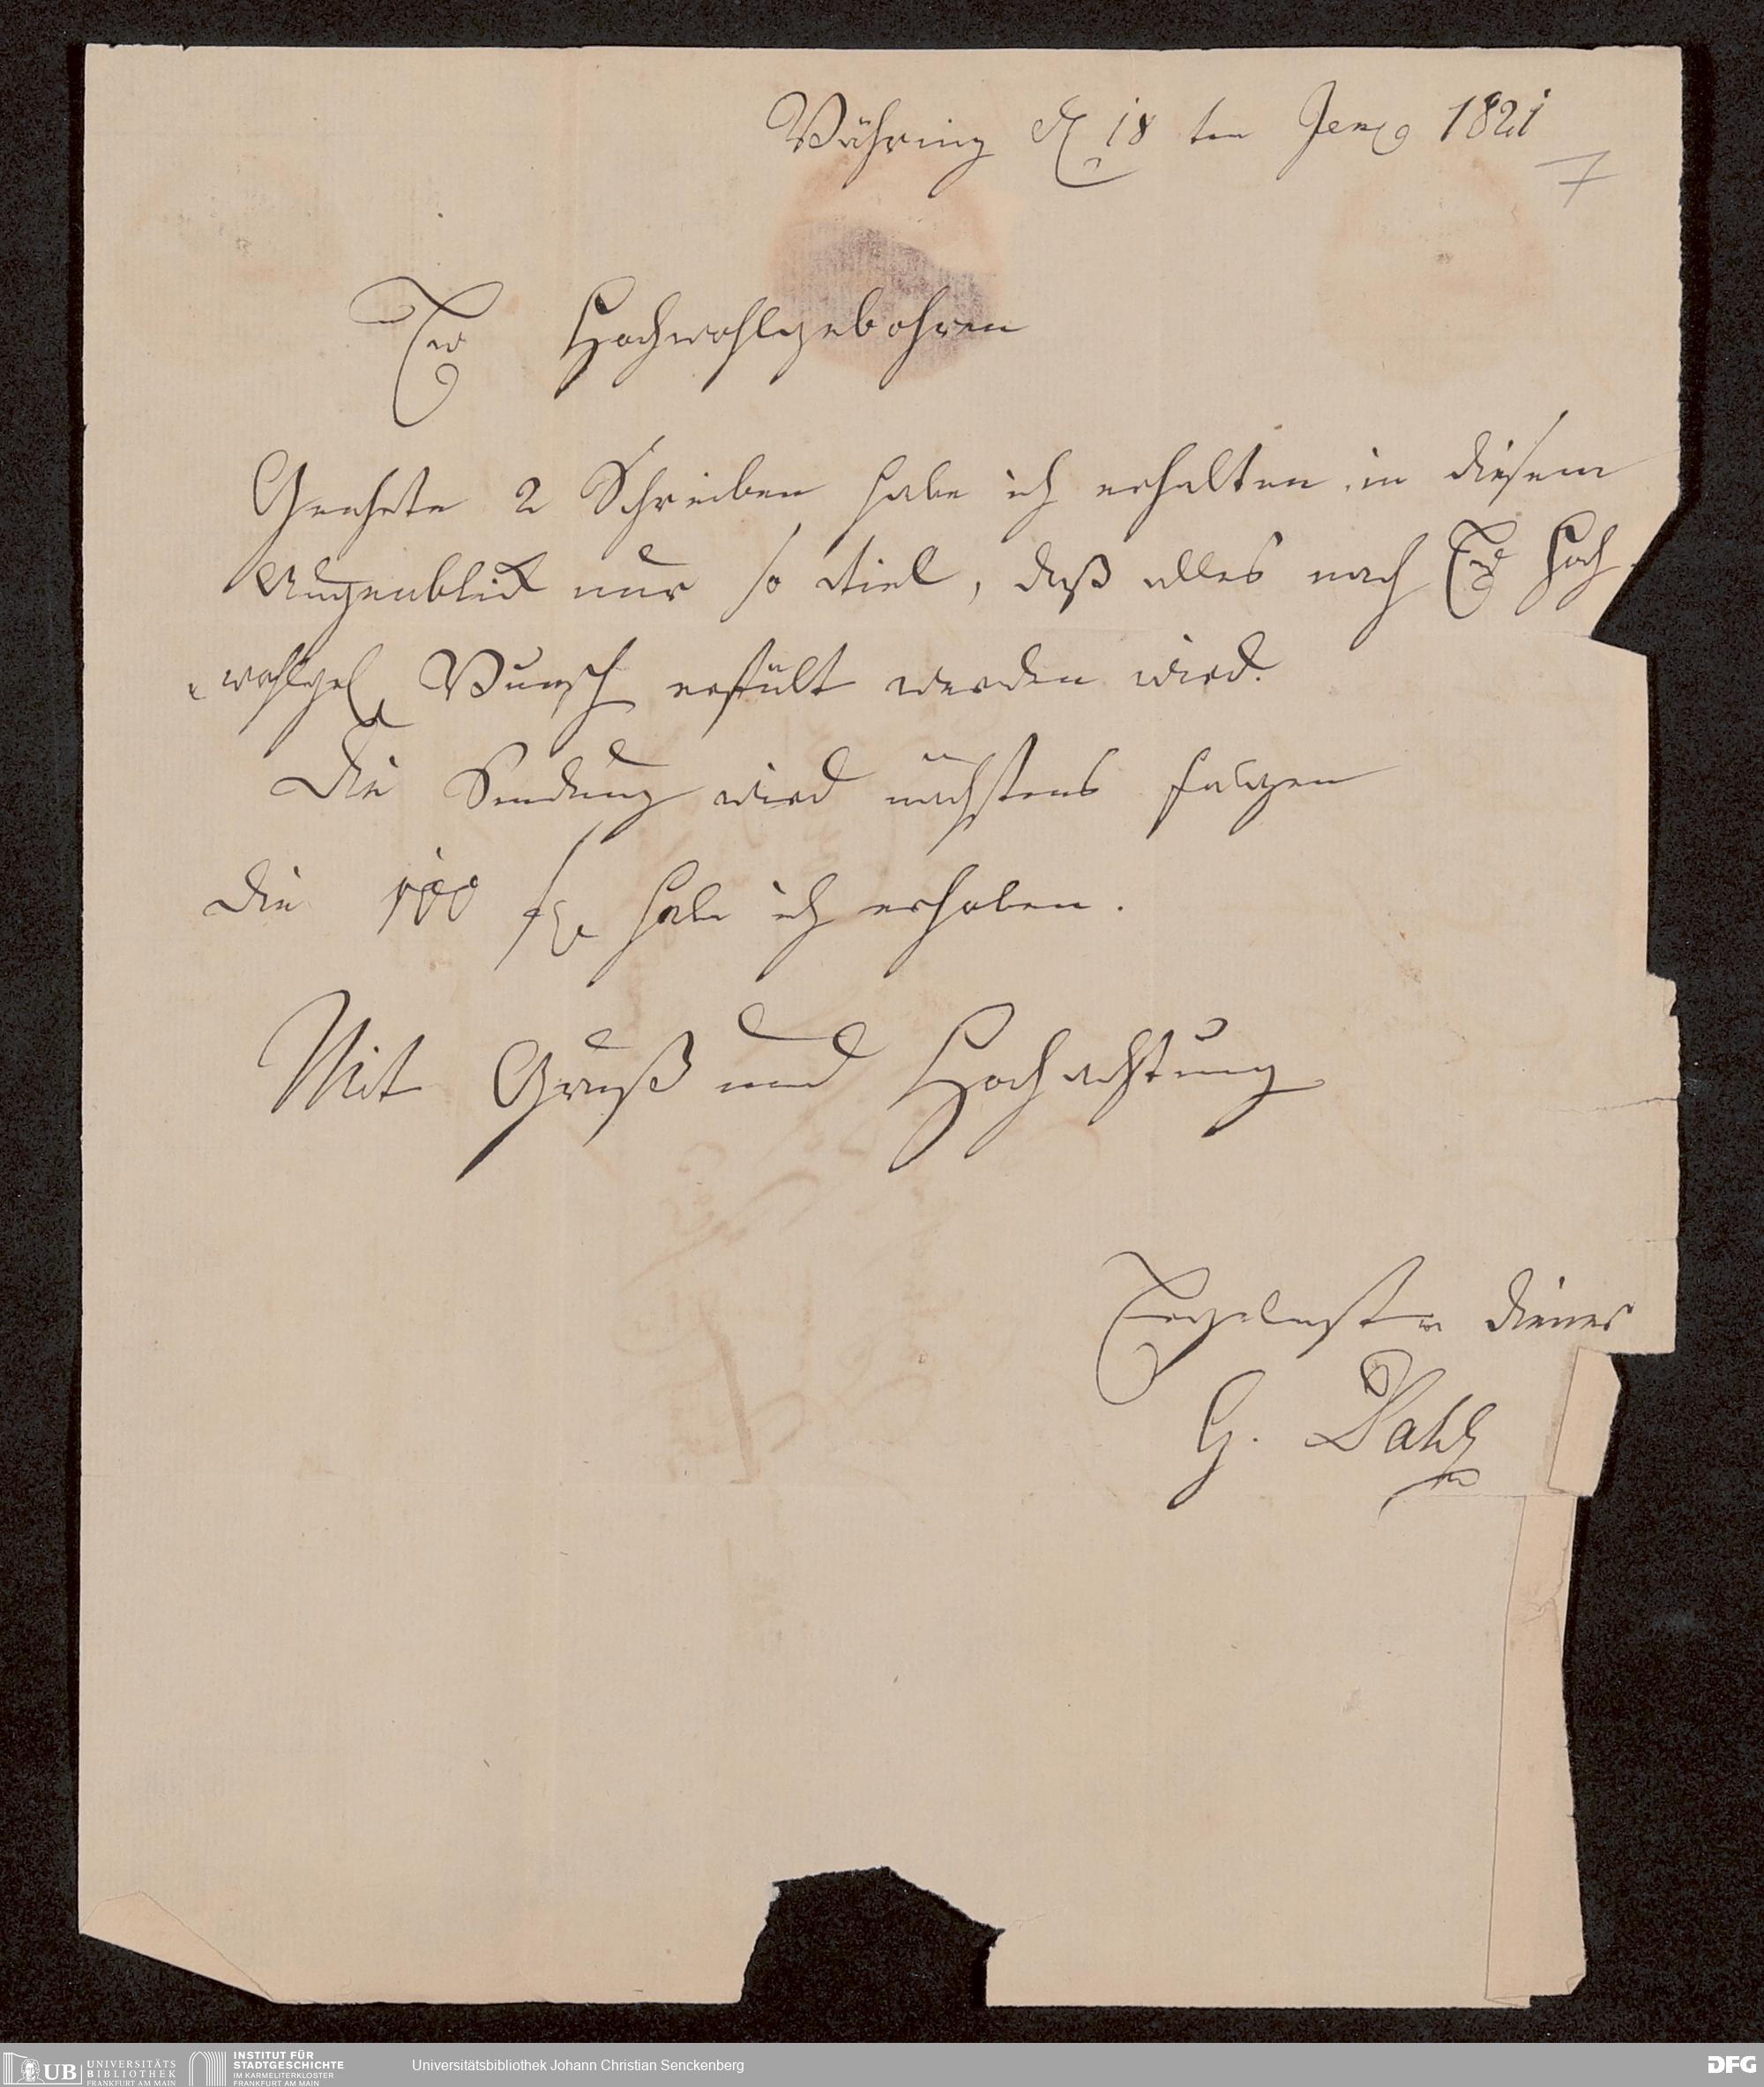 Währing d 18 ten Jenς 1821
7
Ew Hochwohlgebohren
Geehrte 2 Schreiben habe ich erhalten in diesem
Augenblick nur so viel, daß alles nach Ew Hoch
wohlgeb Wunsch erfült werden wird.
Die Sendung wird nächstens folgen
Die 100 habe ich erhoben.
Mit Gruß und Hochachtung
Ergebenster Diener
G. Dahl
UB UNIVERSITÄTS BIBLIOTHEK FRANKFURT AM MAIN
INSTITUT FÜR STADTGESCHICHTE IM KARMELITERKLOSTER FRANKFURT AM MAIN
Universitätsbibliothek Johann Christian Senckenberg
DFG